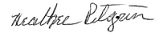 Heather Pilgrim